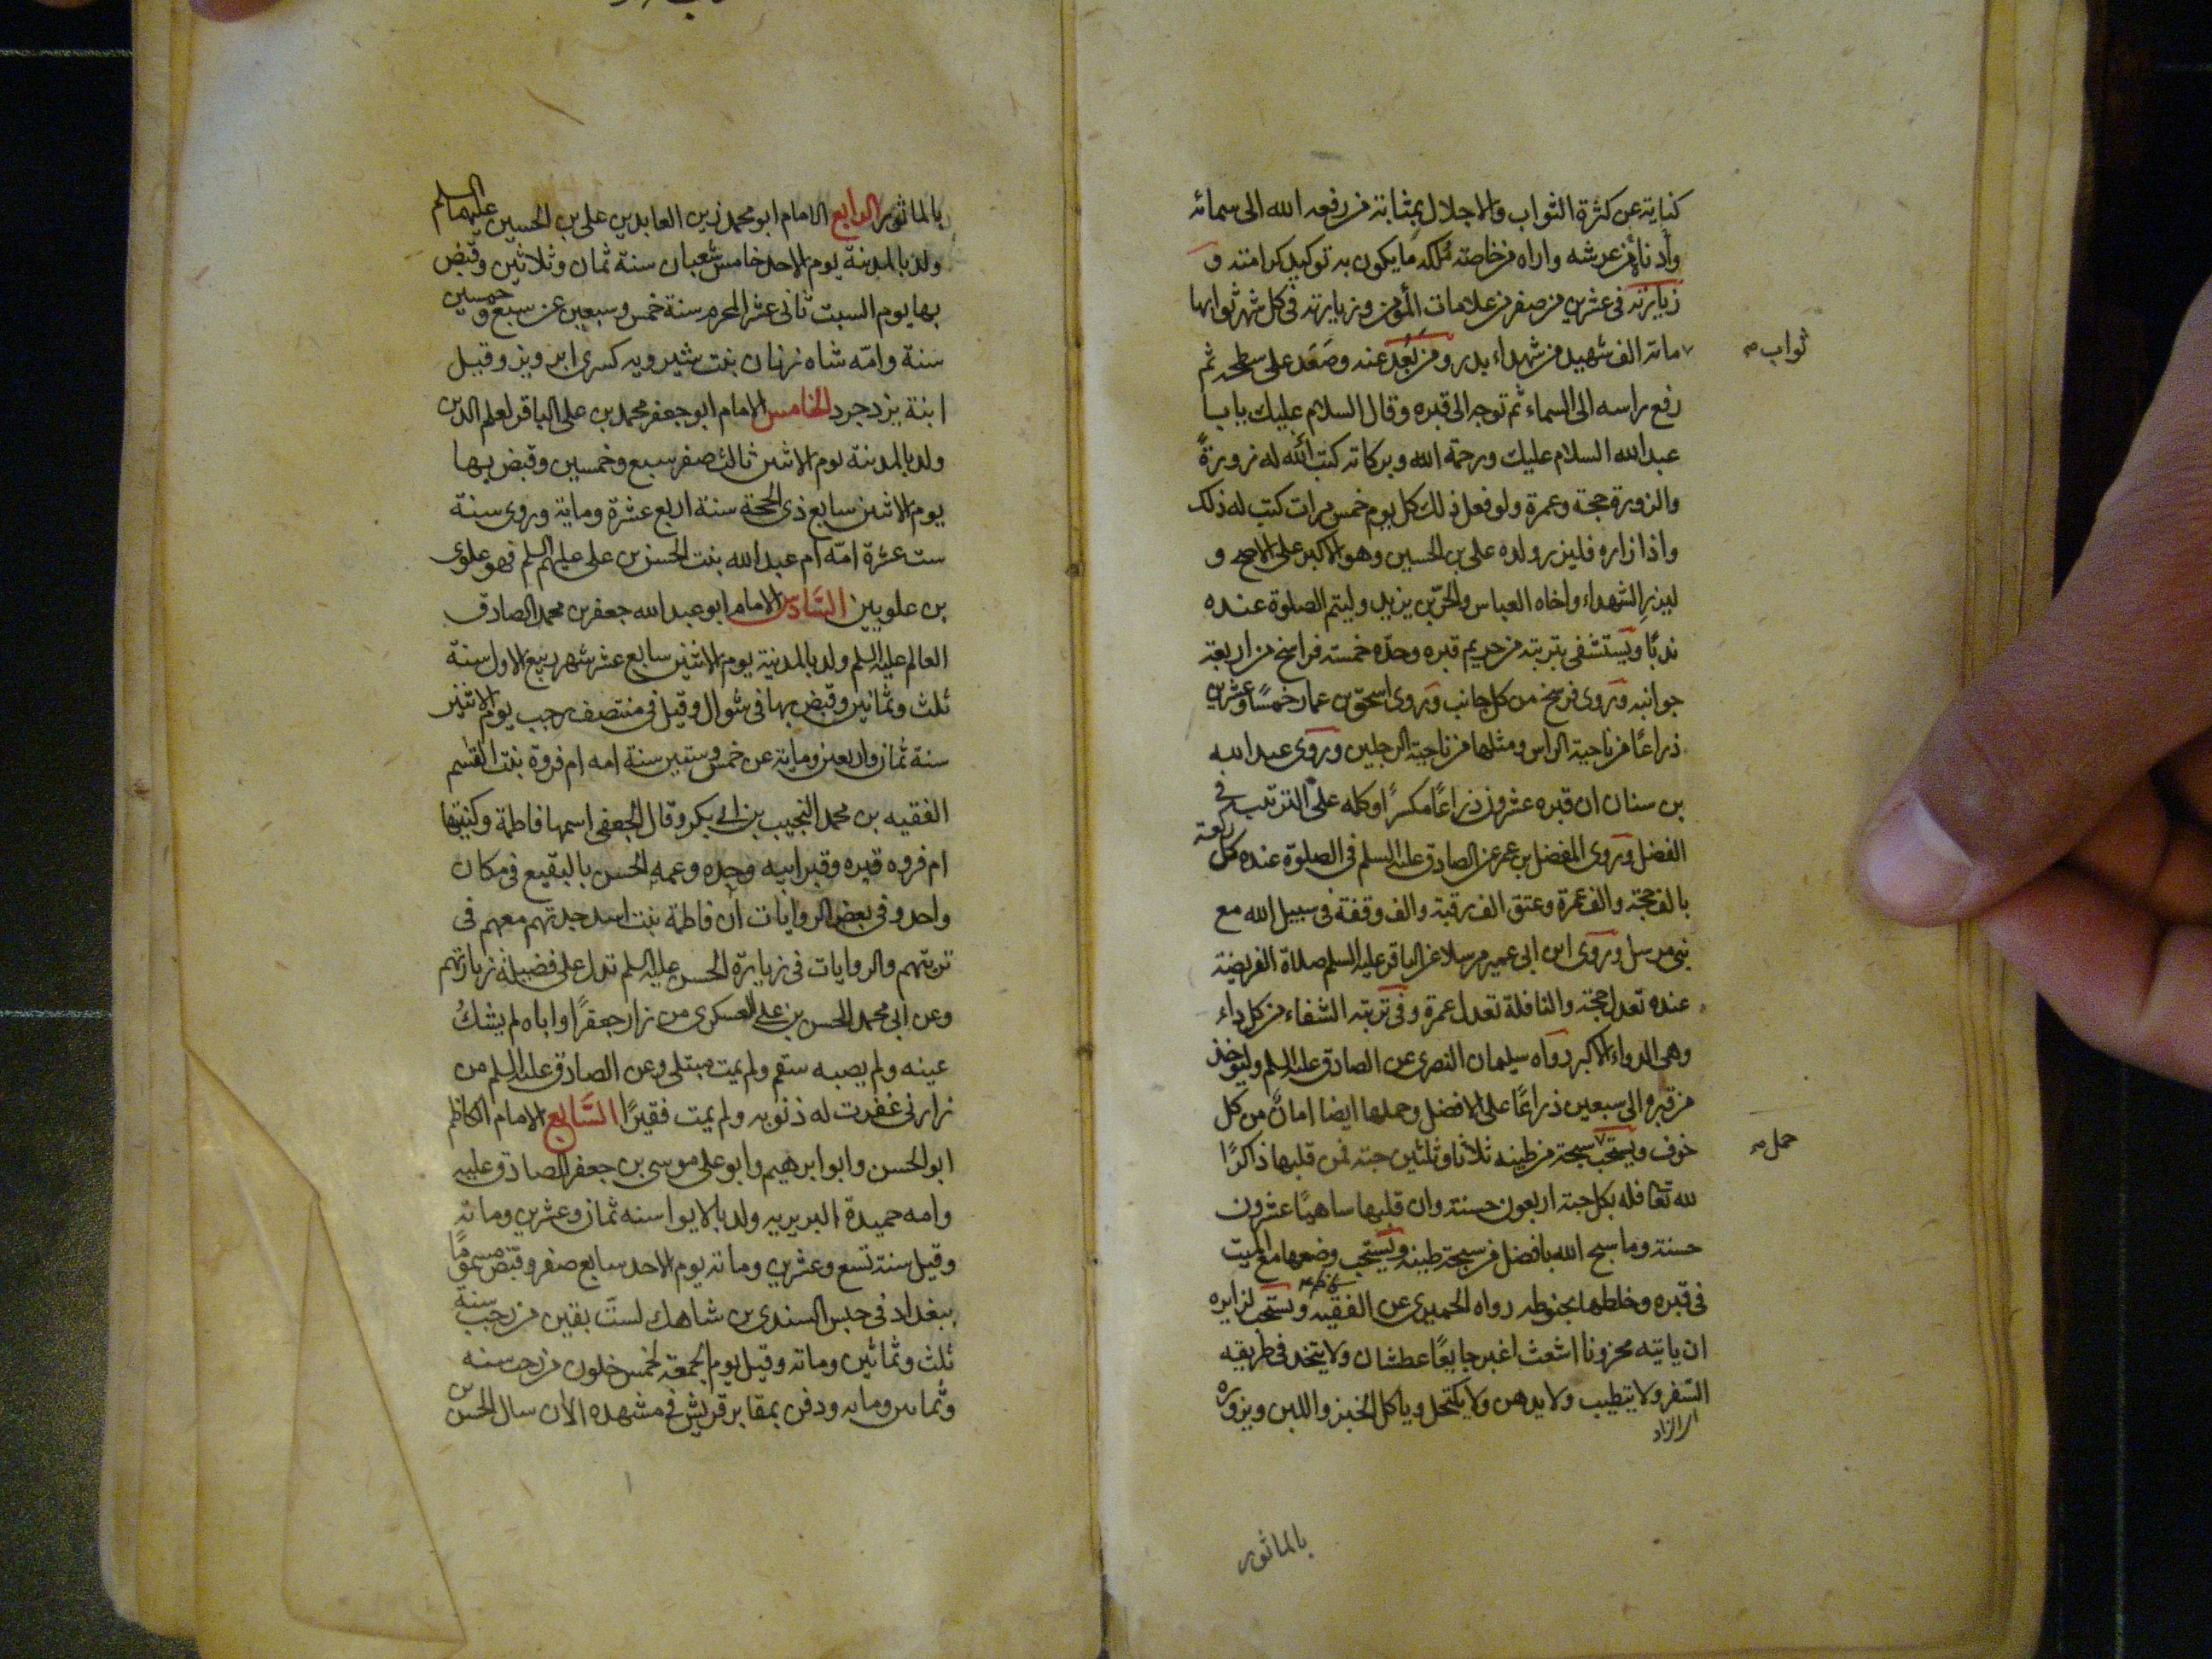 كناية عن كثرة الثواب والاجلال بمثابة من رفعه الله الى سمائه
وأدناه من عرشه واراه من خاصة ملكه ما يكون به توكيد كرامته و
زيارته في عشرين من صفر من علامات المؤمن وزيارته في كل شهر ثوابها
ثواب صح
مائة الف شهيد من شهداء بدر ومن بَعُد عنه وصَعَد على سطحه ثم
رفع راسه الى السماء ثم توجه الى قبره وقال السلام عليك يا با
عبد الله السلام عليك ورحمة الله وبركاته كتب الله له زورةً
والزورة حجة وعمرة ولو فعل ذلك كل يوم خمس مرات كتب له ذلك
واذا زاره فليزر ولده على بن الحسين وهو الاكبر على الاصح و
ليزر الشهداء واخاه العباس والحرّ بن يزيد وليتم الصلوة عنده
ندبًا ويستشفى بتربته من حريم قبره وحدّه خمسة فراسخ من اربعة
جوانبه وروى فرسخ من كل جانب وروى اسحق بن عمار خمسًا وعشرين
ذراعًا من ناحية الراس ومثلها من ناحية الرجلين وروى عبد الله
بن سنان ان قبره عشرون ذراعًا مكسرًا وكله على الترتيب في
الفضل وروى المفضل بن عمر عن الصادق عليه السلم في الصلوة عنده كل ركعة
بالف حجة والف عمرة وعتق الف رقبة والف وقفة في سبيل الله مع
نبي مرسل وروى ابن ابى عمير مرسلا عن الباقر عليه السلم صلاة الفريضة
عنده تعدل حجة والنافلة تعدل عمرة وفي تربته الشفاء من كل داء
وهي الدواء الاكبر رواه سليمان البصرى عن الصادق عليه السلم وليؤخذ
من قبره الى سبعين ذراعًا على الافضل وحملها ايضا امانٌ من كل
خوف ويستحب سبحة من طينه ثلاثا وثلثين حبة فمن قلبها ذاكرًا
حمل صح
لله تعا فله بكل حبة اربعون حسنة وان قلبها ساهيًا عشرون
حسنة وما سبح الله بافضل من سبحة طينه ويستحب وضعها مع الميت
في قبره وخلطها بحنوطه رواه الحميرى عن الفقيه ويستحب لزايره
ان ياتيه محزونا اشعث اغبر جايعًا عطشان ولا يتخذ في طريقه
السّفر ولا يتطيب ولا يدهن ولا يكتحل وياكل الخبز واللبن ويزوره
بالماثور
بالماثور الرابع الامام ابو محمد زين العابدين على بن الحسين عليهما السلم
ولد بالمدينة يوم الاحد خامس شعبان سنة ثمان وثلاثين وقبض
بها يوم السبت ثانى عشر المحرم سنة خمس وسبعين عن سبع وخمسين
سنة وامّه شاه زنان بنت شيرويه كسرى ابرويز وقيل
ابنة يزدجرد الخامس الامام ابو جعفر محمد بن على الباقر لعلم الدين
ولد بالمدينة يوم الاثنين ثالث صفر سبع وخمسين وقبض بها
يوم الاثنين سابع ذى الحجة سنة اربع عشرة وماية وروى سنة
ست عشرة امّه ام عبد الله بنت الحسن بن على عليهم السلم فهو علوى
بن علويين السّادس الامام ابو عبد الله جعفر بن محمد الصادق
العالم عليه السلم ولد بالمدينة يوم الاثنين سابع عشر شهر ربيع الاول سنة
ثلث وثمانين وقبض بها في شوال وقيل في منتصف رجب يوم الاثنين
سنة ثمان واربعين وماية عن خمس وستين سنة امه ام فروة بنت القسم
الفقيه بن محمد النجيب بن ابى بكر وقال الجعفى اسمها فاطمة وكنيتها
ام فروه قبره وقبر ابيه وجده وعمه الحسن بالبقيع في مكان
واحد وفي بعض الروايات أن فاطمة بنت اسد جدتهم معهم في
تربتهم والروايات في زيارة الحسن عليه السلم تدل على فضيلة زيارتهم
وعن ابى محمد الحسن بن على العسكرى من زار جعفرًا واباه لم يشكُ
عينه ولم يصبه سقم ولم يمت مبتلى وعن الصادق عليه السلم من
زارنى غفرت له ذنوبه ولم يمت فقيرًا السّابع الامام الكاظم
ابو الحسن وابو ابرهيم وابو على موسى بن جعفر الصادق عليه
وامه حميدة البربريه ولد بالابوا سنه ثمان وعشرين ومائة
وقيل سنة تسع وعشرين ومائة يوم الاحد سابع صفر وقبض مسمومًا
ببغداد في حبس السندى بن شاهك لست بقين من رجب سنة
ثلث وثمانين ومائة وقيل يوم الجمعة لخمس خلون من رجب سنه
وثمانين ومائة ودفن بمقابر قريش في مشهده الان سال الحسن بن